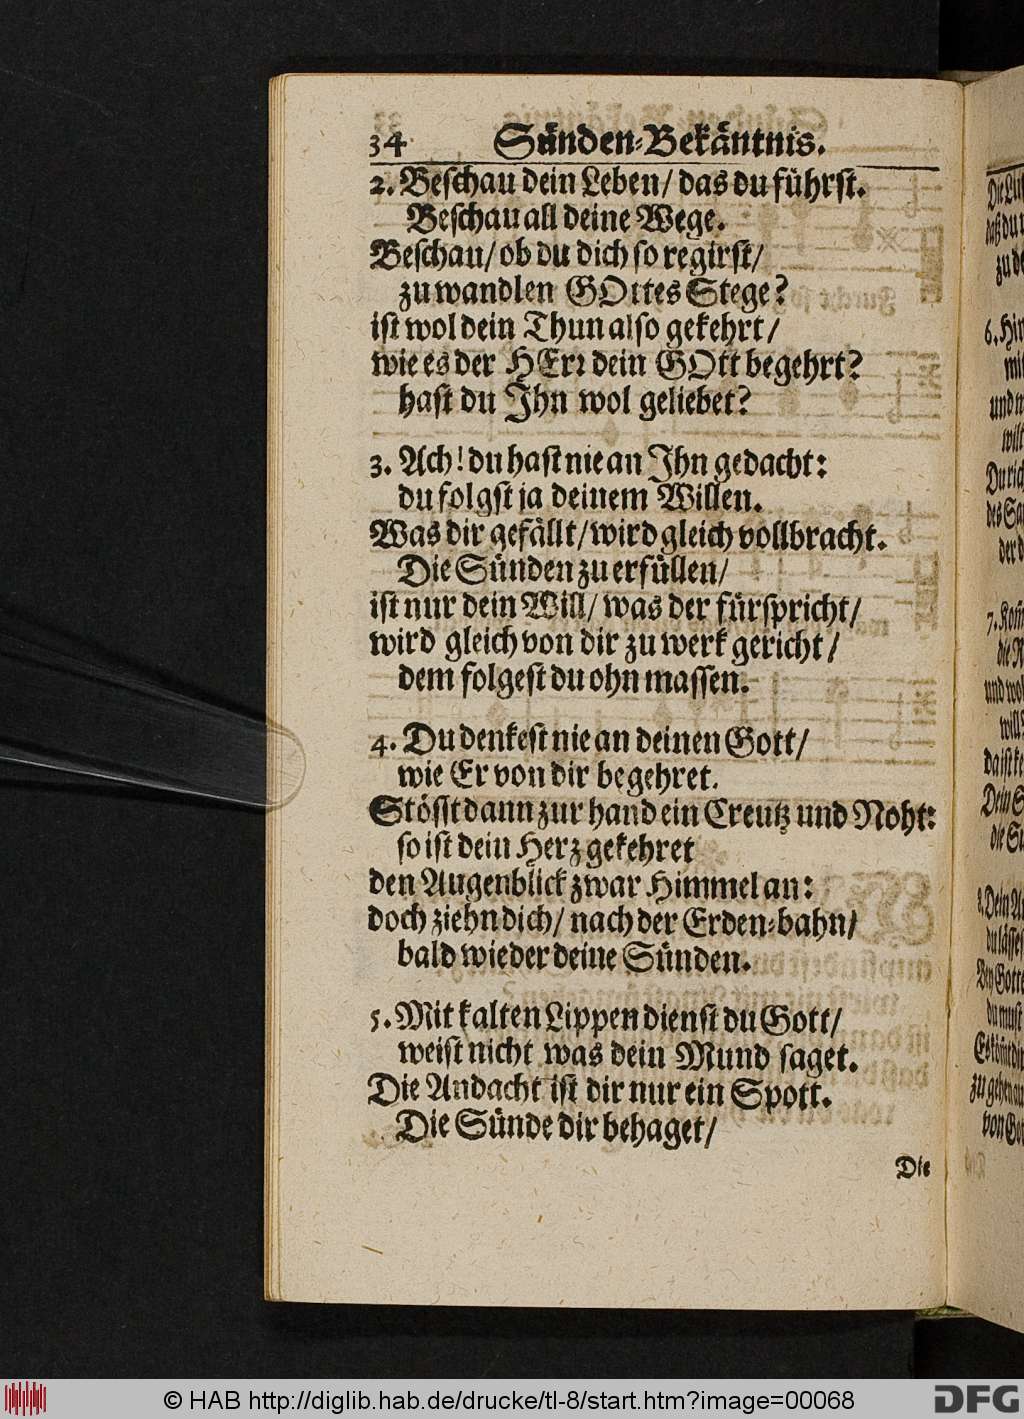 34 Sünden-Bekäntnis.
2. Beschau dein Leben/ das du führst.
Beschau all deine Wege.
Beschau/ ob du dich so regirst/
zu wandlen GOttes Stege?
ist wol dein Thun also gekehrt/
wie es der HErr dein GOtt begehrt?
hast du Jhn wol geliebet?
3. Ach! du hast nie an Jhn gedacht:
du folgst ja deinem Willen.
Was dir gefällt/ wird gleich vollbracht.
Die Sünden zu erfüllen/
ist nur dein Will/ was der fürspricht/
wird gleich von dir zu werk gericht/
dem folgest du ohn massen.
4. Du denkest nie an deinen Gott/
wie Er von dir begehret.
Stösst dann zur hand ein Creutz und Noht:
so ist dein Herz gekehret
den Augenblick zwar Himmel an:
doch ziehn dich/ nach der Erden-bahn/
bald wieder deine Sünden.
5. Mit kalten Lippen dienst du Gott/
weist nicht was dein Mund saget.
Die Andacht ist dir nur ein Spott.
Die Sünde dir behaget/
Die
6. Hir
7. Kom
8. Dein
© HAB http://diglib.hab.de/drucke/tl-8/start.htm?image=00068
DFG